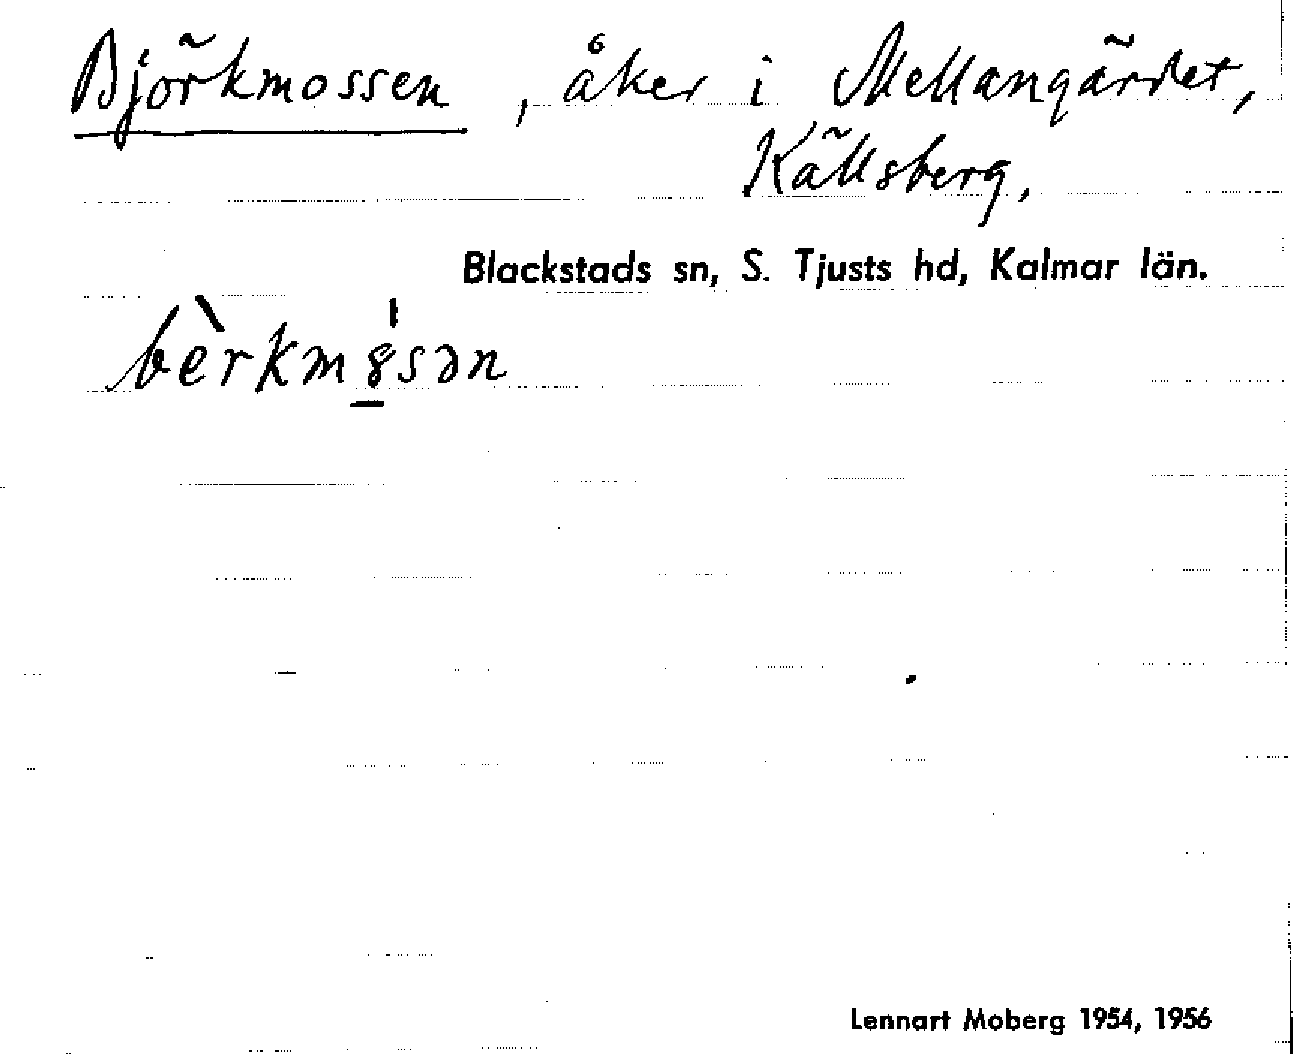 Björkmossen, åker i Mellangärdet,
Källsberg,
Blackstads sn, S. Tjusts hd, Kalmar län.
bèrkmo̲̍sən
Lennart Moberg 1954, 1956